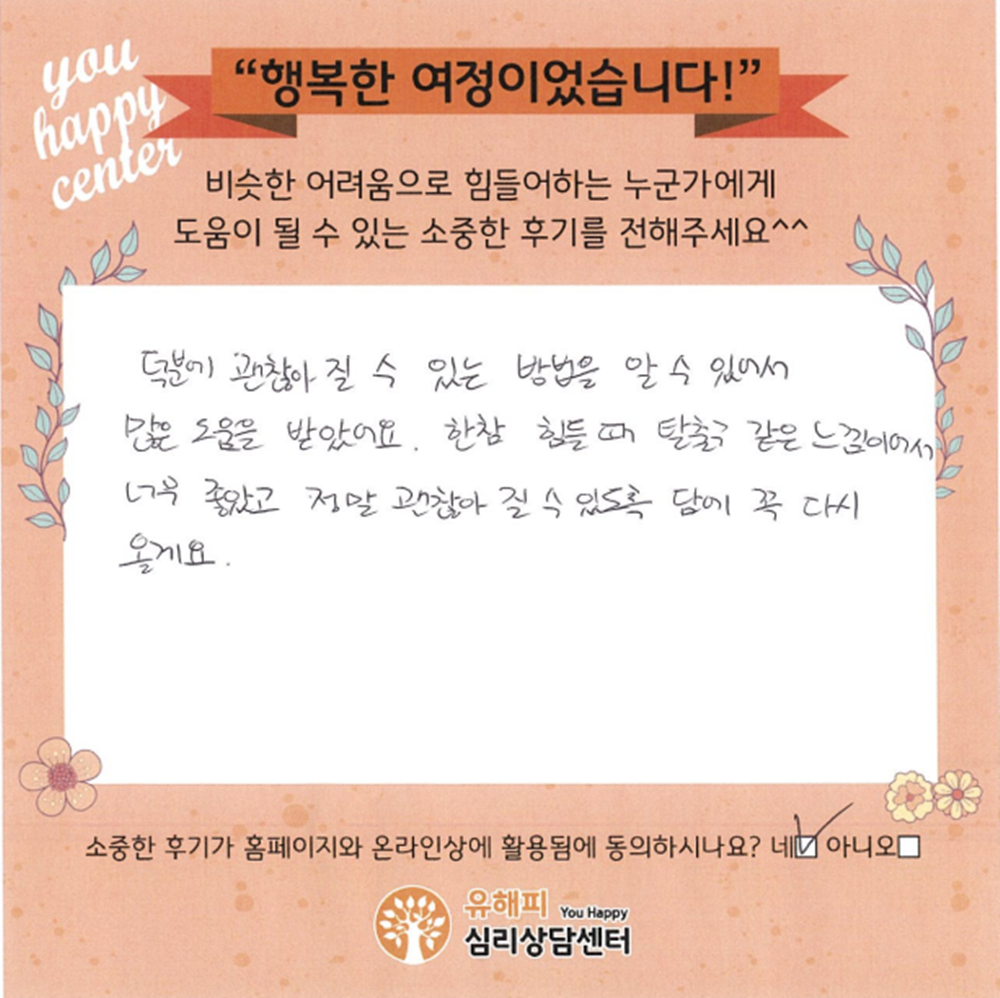 you
happy
center
“행복한 여정이었습니다!”
비슷한 어려움으로 힘들어하는 누군가에게
도움이 될 수 있는 소중한 후기를 전해주세요^^
덕분에 괜찮아 질 수 있는 방법을 알 수 있어서
많은 도움을 받았어요. 한참 힘들 때 탈출구 같은 느낌이어서
너무 좋았고 정말 괜찮아 질 수 있도록 담에 꼭 다시
올게요.
소중한 후기가 홈페이지와 온라인상에 활용됨에 동의하시나요? 네☑ 아니오☐
유해피 You Happy
심리상담센터